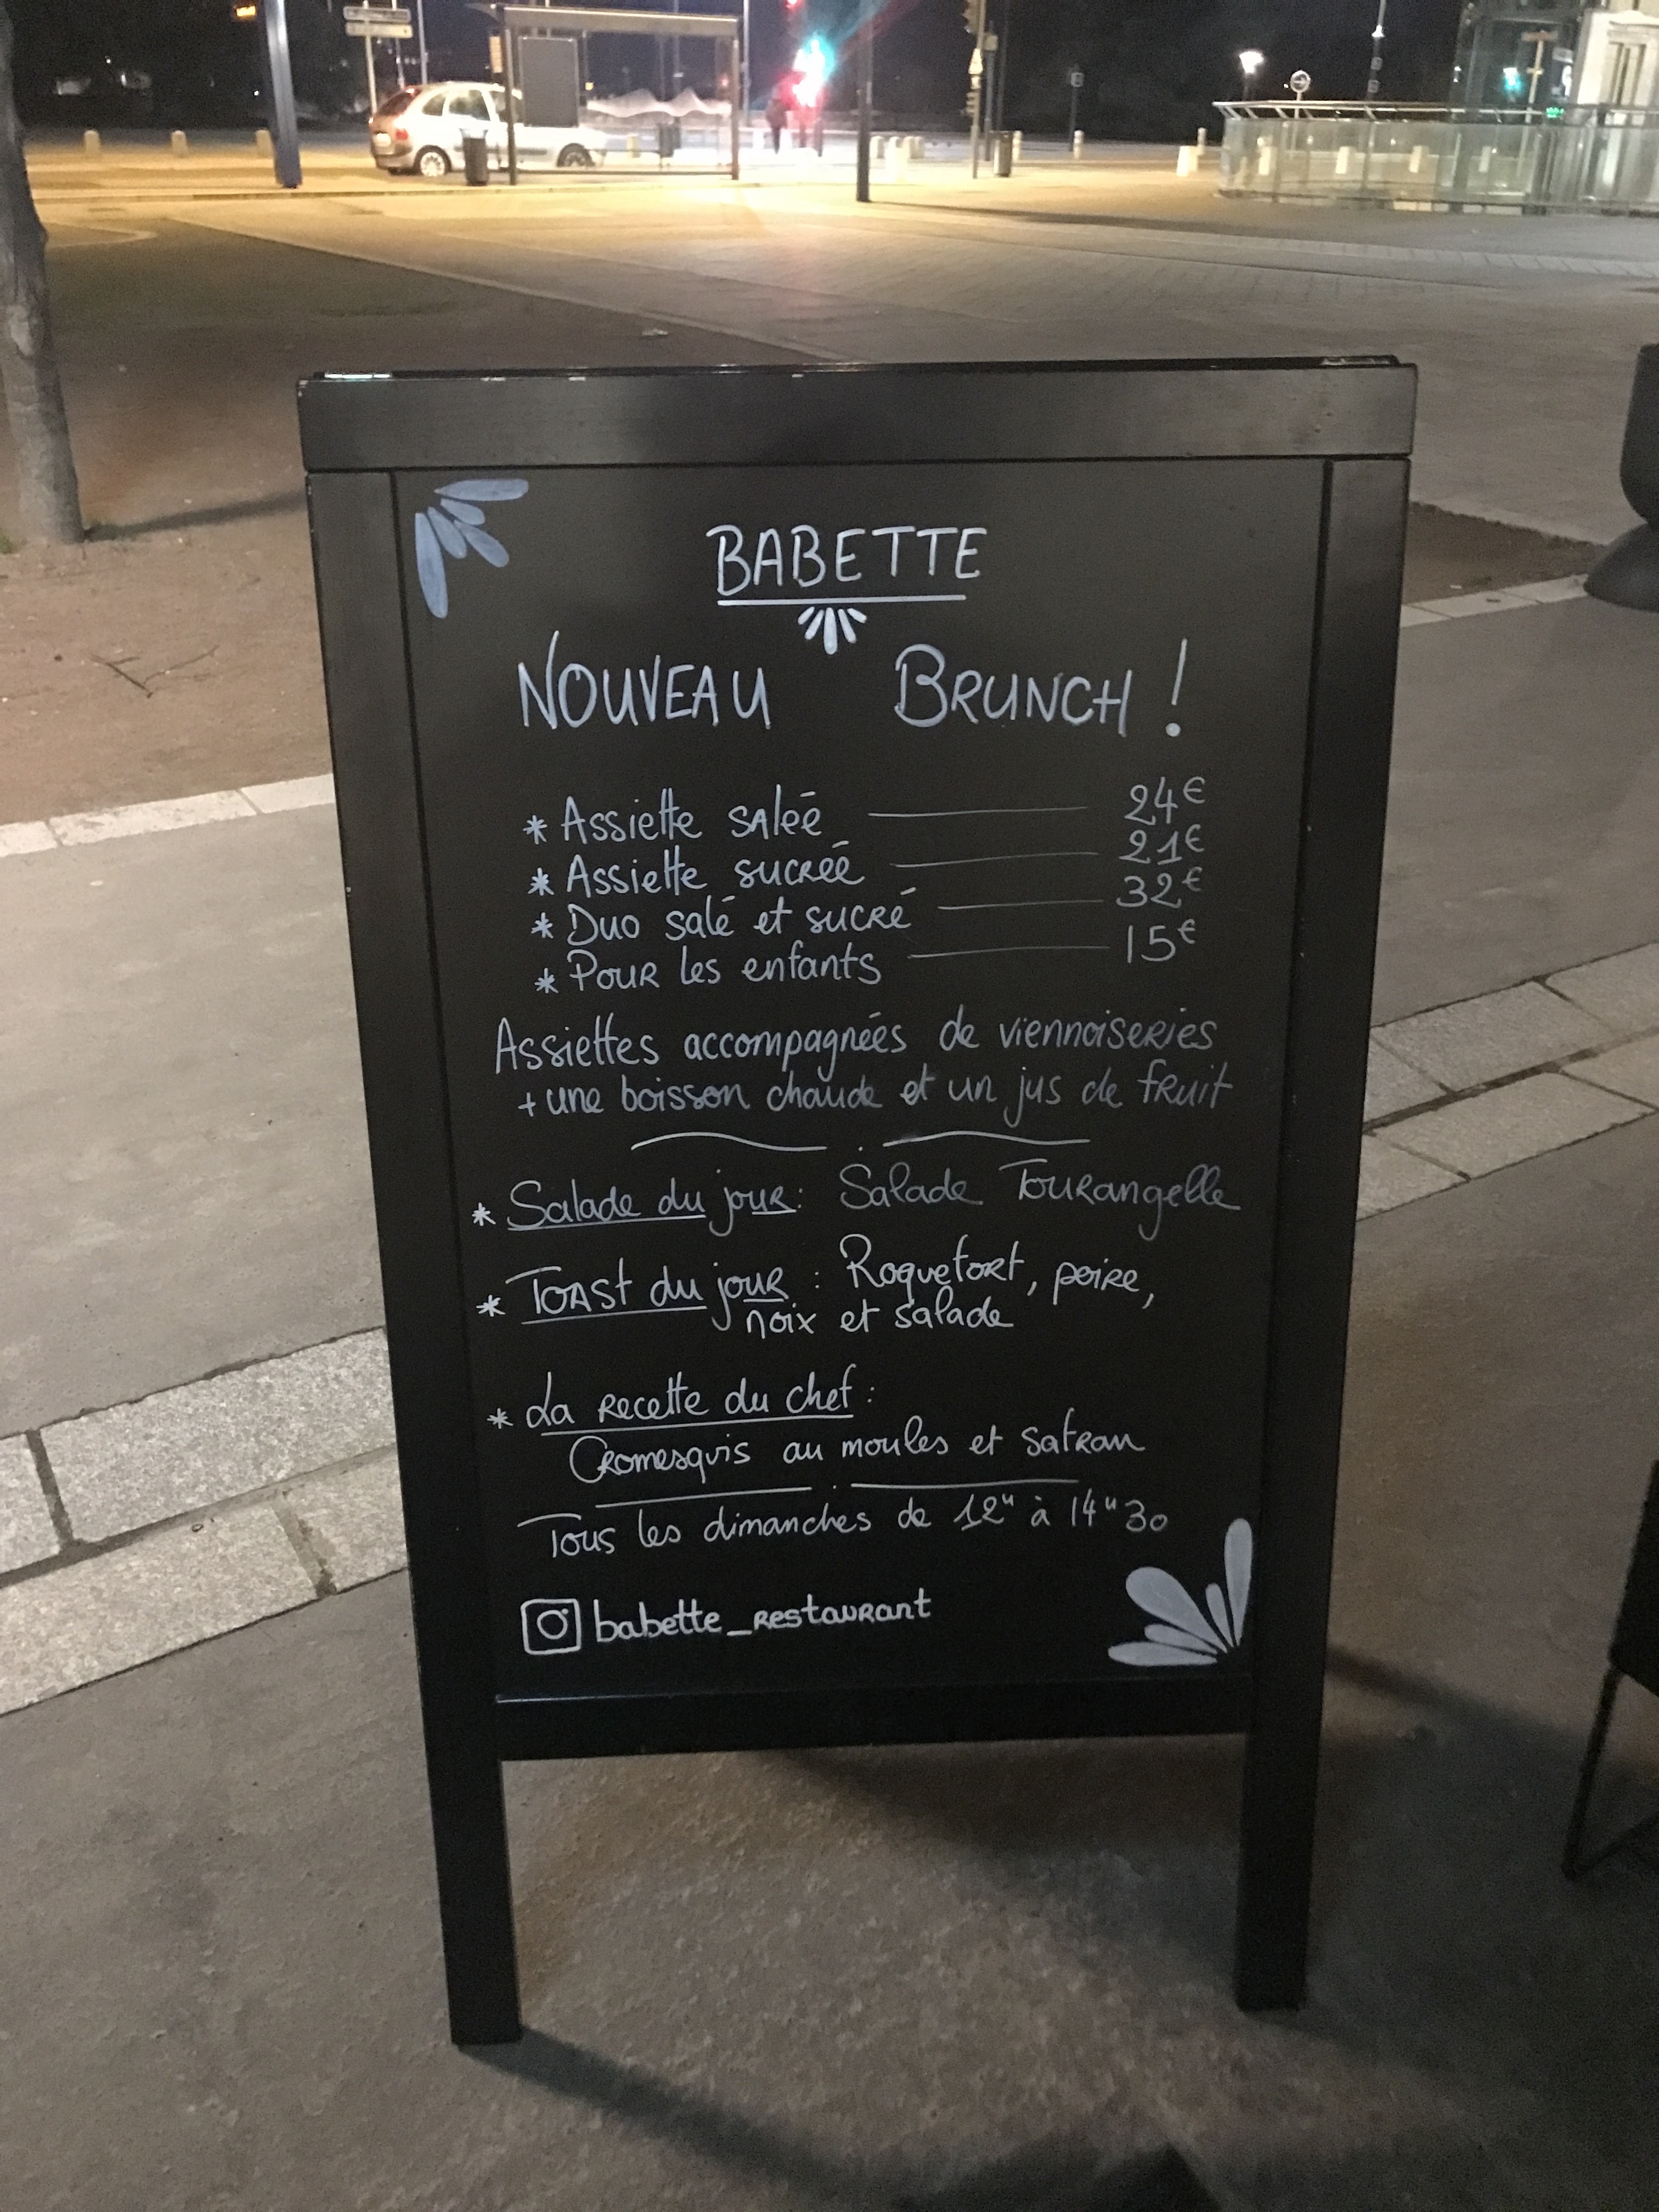 BABETTE
NOUVEAU BRUNCH !
* Assiette salée 24€
* Assiette sucrée 21€
* Duo salé et sucré 32€
* Pour les enfants 15€
Assiettes accompagnées de viennoiseries
+ une boisson chaude et un jus de fruit
* Salade du jour : Salade Tourangelle
* Toast du jour : Roquefort, poire,
noix et salade
* La recette du chef :
Cromesquis au moules et safran
Tous les dimanches de 12H à 14H30
babette_restaurant